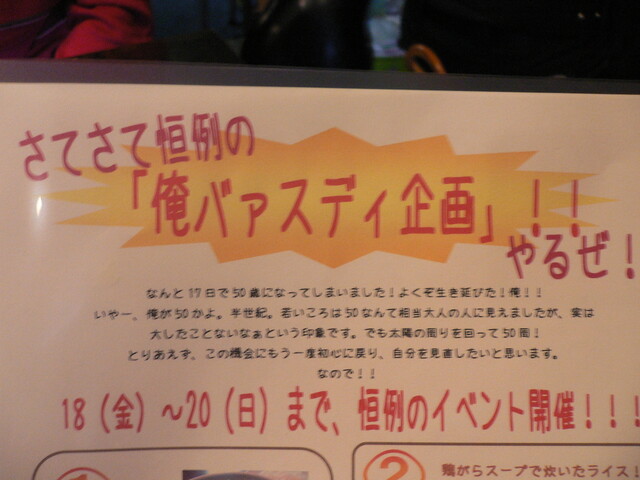 さてさて恒例の
「俺バァスディ企画」！！
やるぜ！
なんと17日で50歳になってしまいました！よくぞ生き延びた！俺！！
いやー、俺が50かよ。半世紀。若いころは50なんて相当大人の人に見えましたが、実は
大したことないなぁという印象です。でも太陽の周りを回って50周！
とりあえず、この機会にもう一度初心に戻り、自分を見直したいと思います。
なので！！
18（金）～20（日）まで、恒例のイベント開催！！！
1
2
鶏がらスープで炊いたライス！